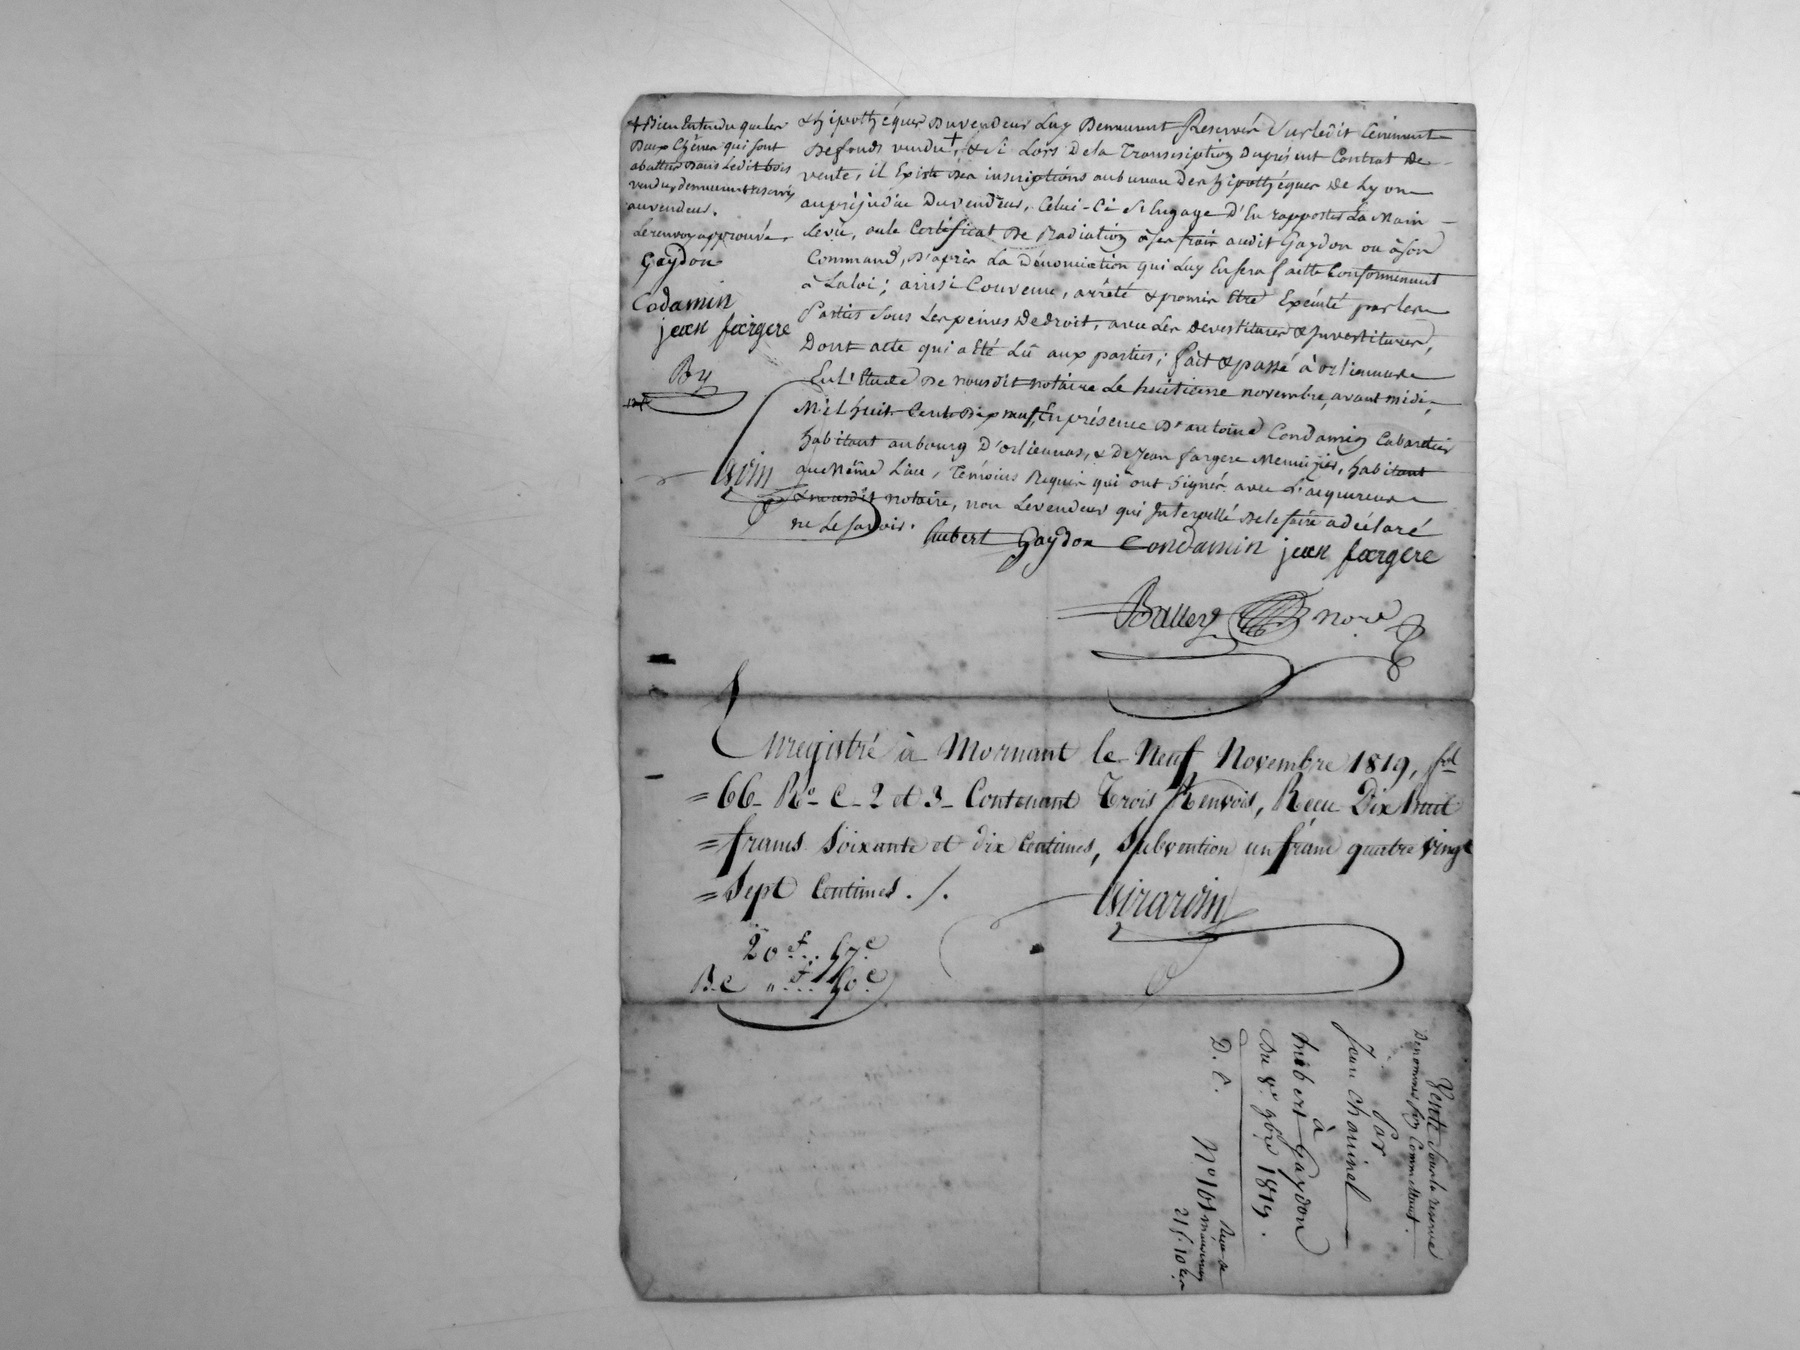 + Bien Entendu que les
Deux Chênes qui sont
abattus dans Ledit bois
vendu, demeurent réservés
au vendeur.
Le renvoy approuvé.
Gaydon
Codamin
jean fargere
By
& hipothéques Du vendeur Luy Demeurent Réservés Sur ledit tenement
De fonds vendu +, & Si Lors De la Transcription Du présent Contrat De
vente, il Existe Des inscriptions au bureau Des hipothéques De Lyon
au préjudice Du vendeur, Celui-Ci S'Engage D'En rapporter La Main
Levée, ou le Certificat De Radiation à Ses frais audit Gaydon ou à Son
Command, D'après La Dénonciation qui Luy En sera faitte Conformément
à La loi; ainsi Convenu, arrêté & promis Etre Exécuté par les
Parties Sous Les peines De droit, avec Les Devestitures & Investitures,
Dont acte qui a Eté Lû aux parties; fait & passé à orlienas
En L'Etude De nousdit notaire Le huitieme novembre, avant midi,
Mil huit Cent Dix neuf, En présence Dr antoine Condamin Cabaretier
habitant au bourg D'orlienas, & De Jean fargere Menuizier, habitant
au Même Lieu, Témoins Requis qui ont Signés avec L'acquereur
& nousdit notaire, non Le vendeur qui Interpellé De le faire a déclaré
ne Le Savoir.
humbert Gaydon Condamin jean fargere
Balley nore
Enregistré à Mornant le Neuf Novembre 1819, fol
= 66 Ro C. 2 et 3 Contenant Trois Renvois, Recu Dix huit
= francs Soixante et dix Centimes, Subvention un franc quatre vingt
= Sept Centimes ./.
Girardin
20 f... 57 c
B. C " f... 50 c
Vente Sous la reserve
De nommer son Commettant.
Par
Jean Chauinel
à
Imbert Gaydon
Du 8e 9bre 1819.
D. C. No 101
21 f. 10